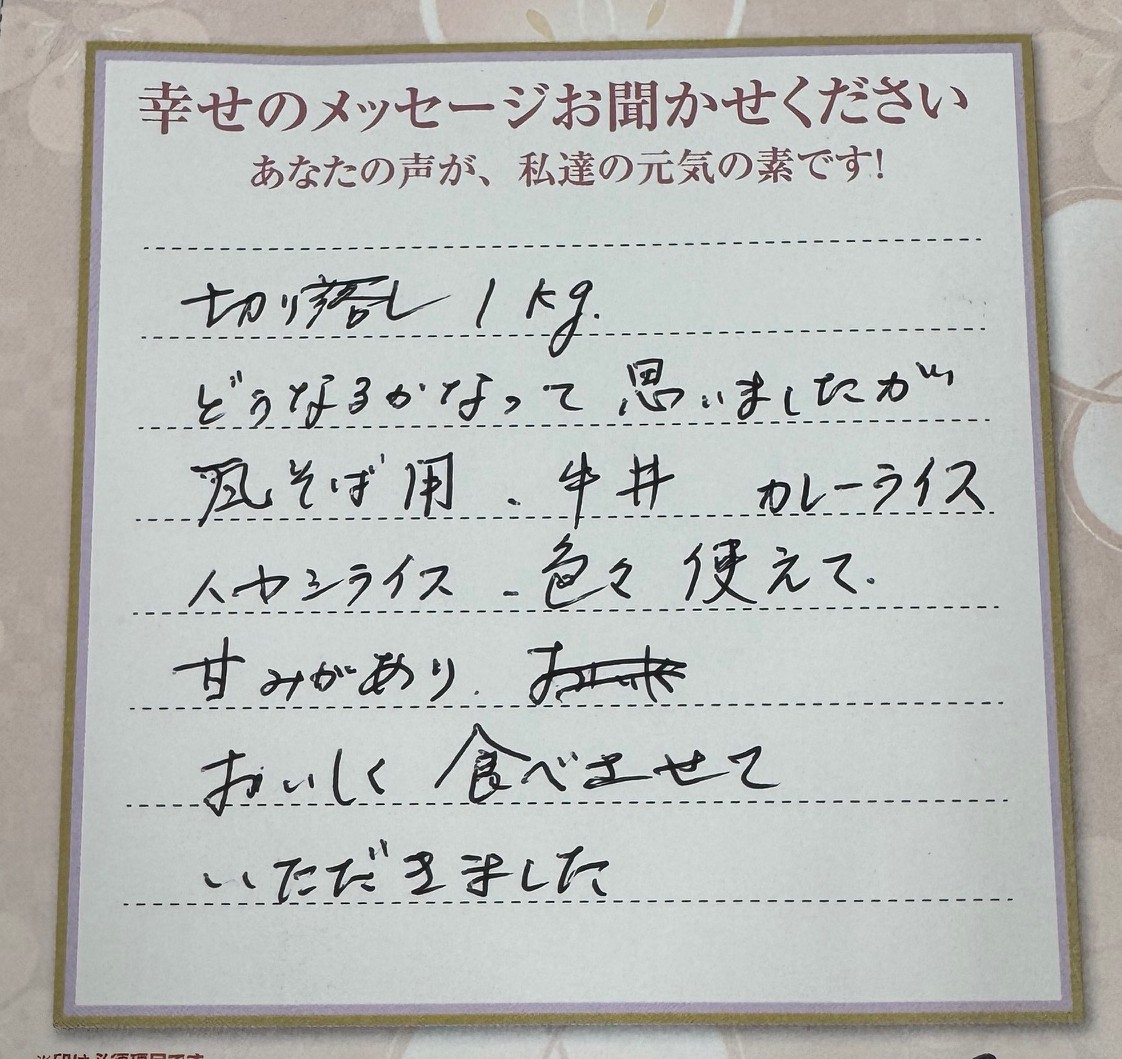 幸せのメッセージお聞かせください
あなたの声が、私達の元気の素です!
切り落し 1kg.
どうなるかなって 思いましたが
瓦そば用、牛丼 カレーライス
ハヤシライス、色々 使えて.
甘みがあり.
おいしく 食べさせて
いただきました